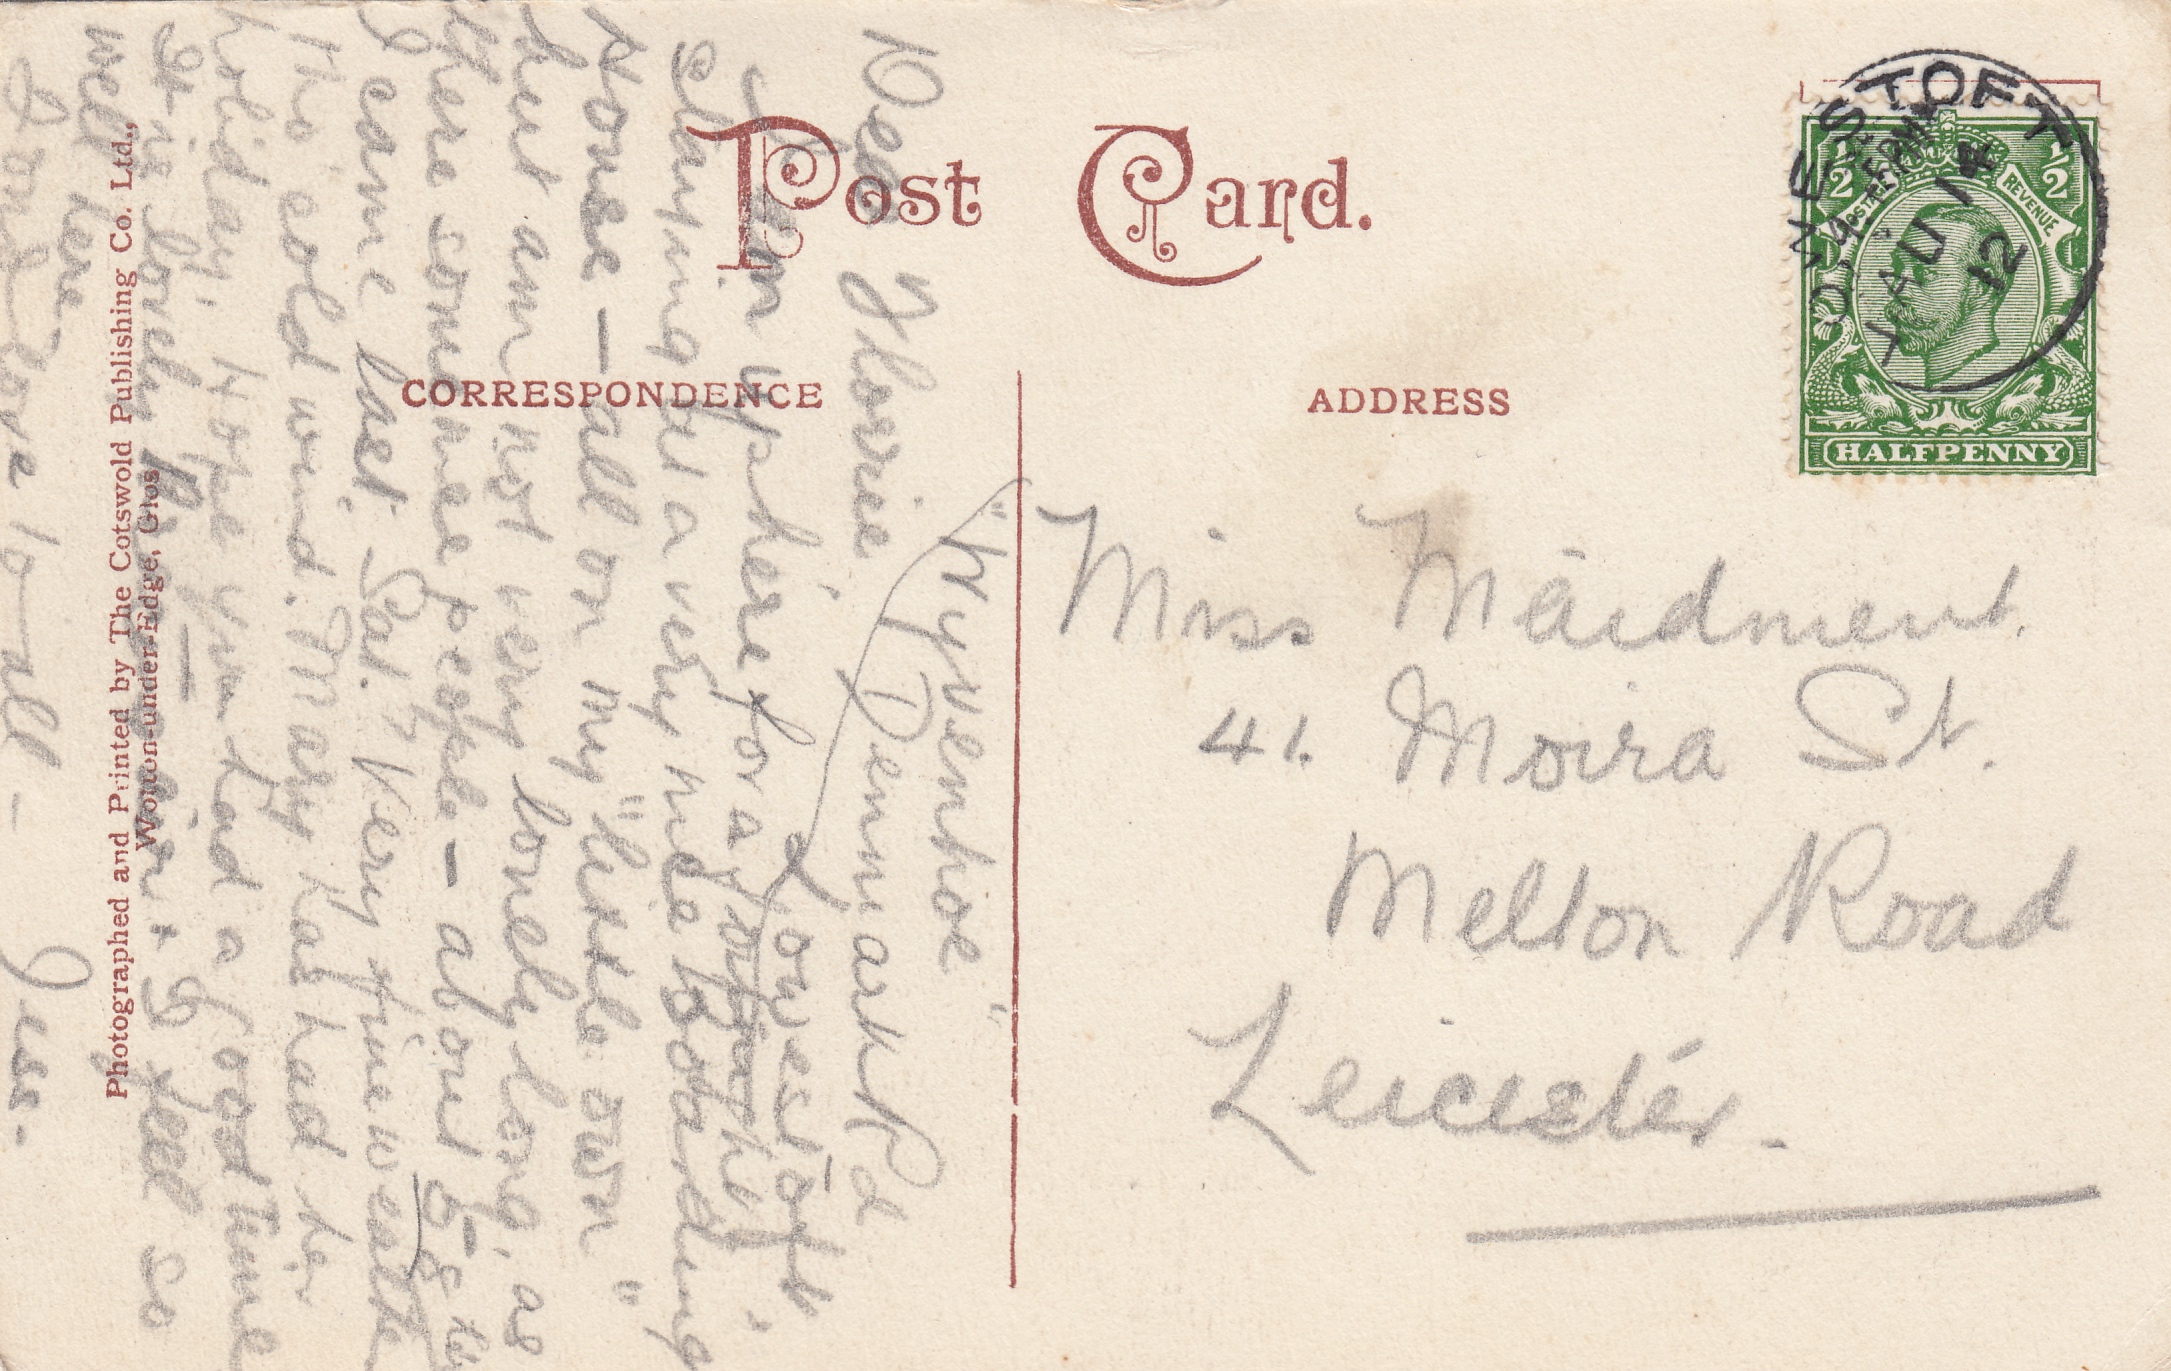 Post Card.
CORRESPONDENCE
ADDRESS
LOWESTOFT
AU 14
12
POSTAGE
REVENUE
1/2
1/2
HALFPENNY
Miss Maidment.
41. Moira St.
Melton Road
Leicester.
"Wyvenhoe"
Denmark Rd
Lowestoft.
Dear Florrie
Am up here for a fortnight,
staying at a very nice Boarding
House — all on my "little own"
but am not very lonely long, as
there some nice people — about
I came last Sat. Very fine weather
tho' cold wind. Mary has had her
holiday, Hope you had a good time
It is lovely & I feel so
well here.
Fond love to all —
Jess.
Photographed and Printed by The Cotswold Publishing Co. Ltd.,
Wotton-under-Edge, Glos